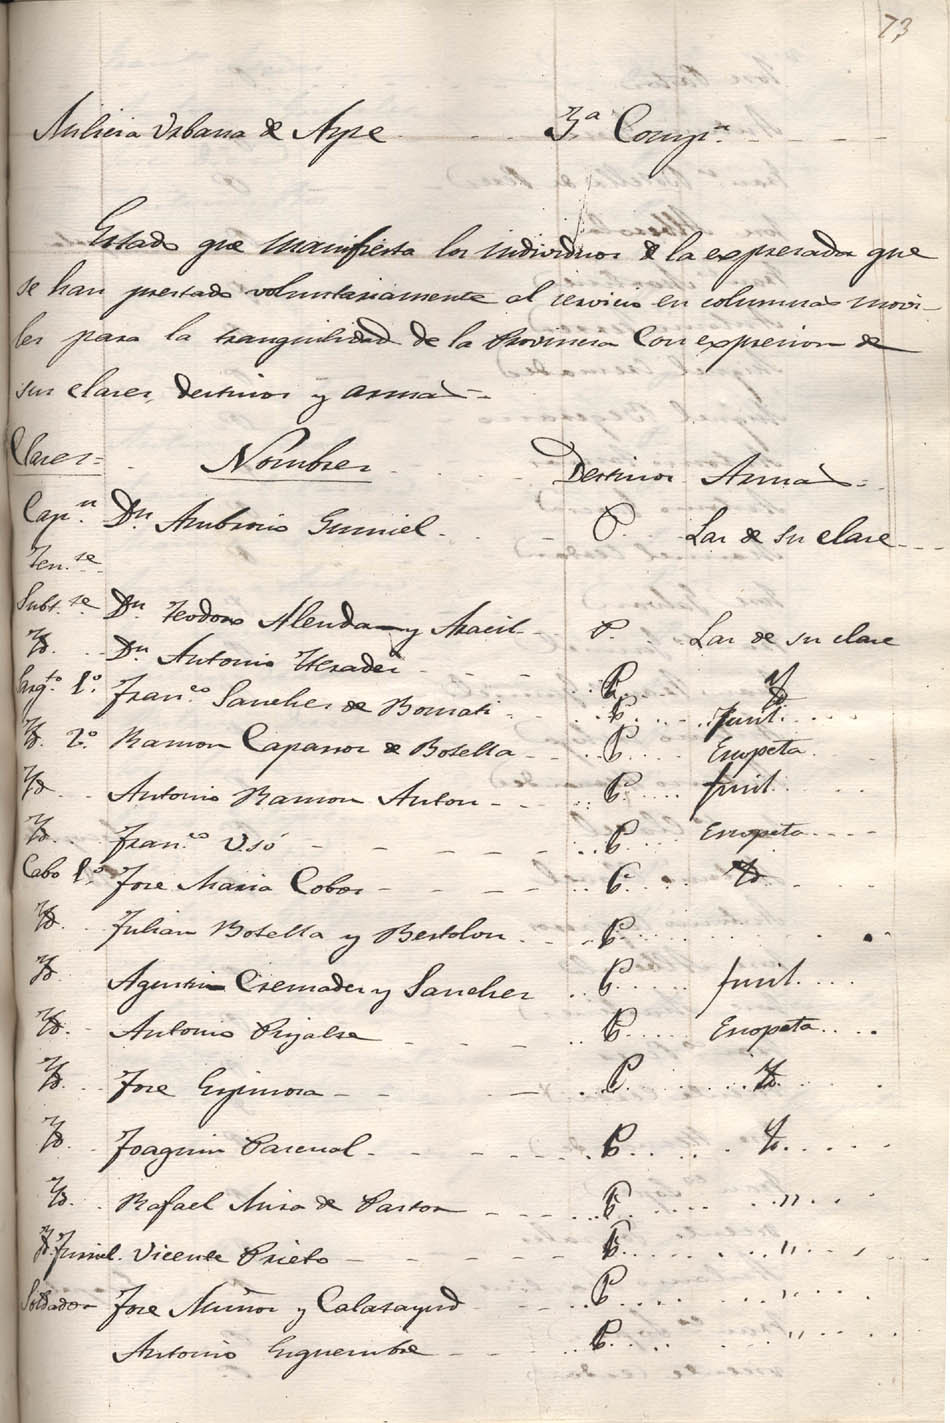 73
Milicia Urbana de Aspe - - - 3ª Compª. - - - -
Estado que manifiesta los individuos de la expresada que
se han prestado voluntariamente al servicio en columnas movi-
les para la tranquilidad de la Provincia con expresion de
sus clases, destinos y armas.=
Clases= . Nombres . . . - - Destinos Armas=
Capn. Dn. Ambrosio Gumiel. . . P. Las de su clase - - -
Ten.te
Subt.te Dn. Teodoro Alenda y Aracil - P. . Las de su clase
Yd. . . Dn. Antonio Cremades - - - . . P. Yd
Sargto. 1º. Franco. Sanches de Bonati . - - . . P. . . . . Fusil. . . . .
Yd. 2º. Ramon Caparros de Botella - - - P. . . . . Escopeta.
Yd. . . Antonio Ramon Anton - - - . . P. . . . . fusil. . . .
Yd. . . Franco. Usó - - - - - . . P. . . . . Escopeta. . . . - -
Cabo 1º. Jose Maria Cobos - - - - - P. . . . . Yd. . .
Yd. . . Julian Botella y Bertolon . - . . P. . . . .
Yd. . Agustin Cremades y Sanches . . P. . . . . fusil. . . .
Yd. . - Antonio Prijalse . - - - . . P. . . . . Escopeta. . . . .
Yd. . . Jose Espinosa - - - P. . . . . Yd. .
Yd. . . Joaquin Pascual . - - - - P. . . . . Yd. . . . .
Yd. . . Rafael Mira de Pastor - - - - . . P. . . . . " . . . .
Vicente Prieto - - - - - . . P. . . . . " . . . .
Soldados Jose Muñoz y Calatayud - - P. . . . . " . . . .
Antonio - - - . . P. . . . . " . . . .